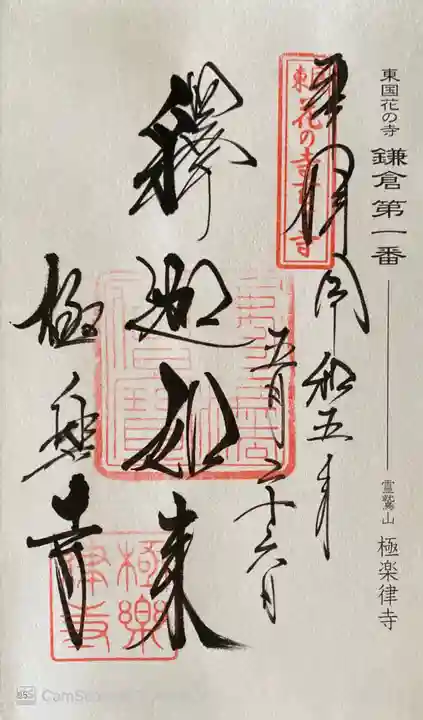 東国花の寺 鎌倉第一番 霊鷲山 極楽律寺
奉拝 令和五年
五月二十六日
釋迦如来
極楽寺
東国花の寺百ヶ寺
極樂律寺
CamSc